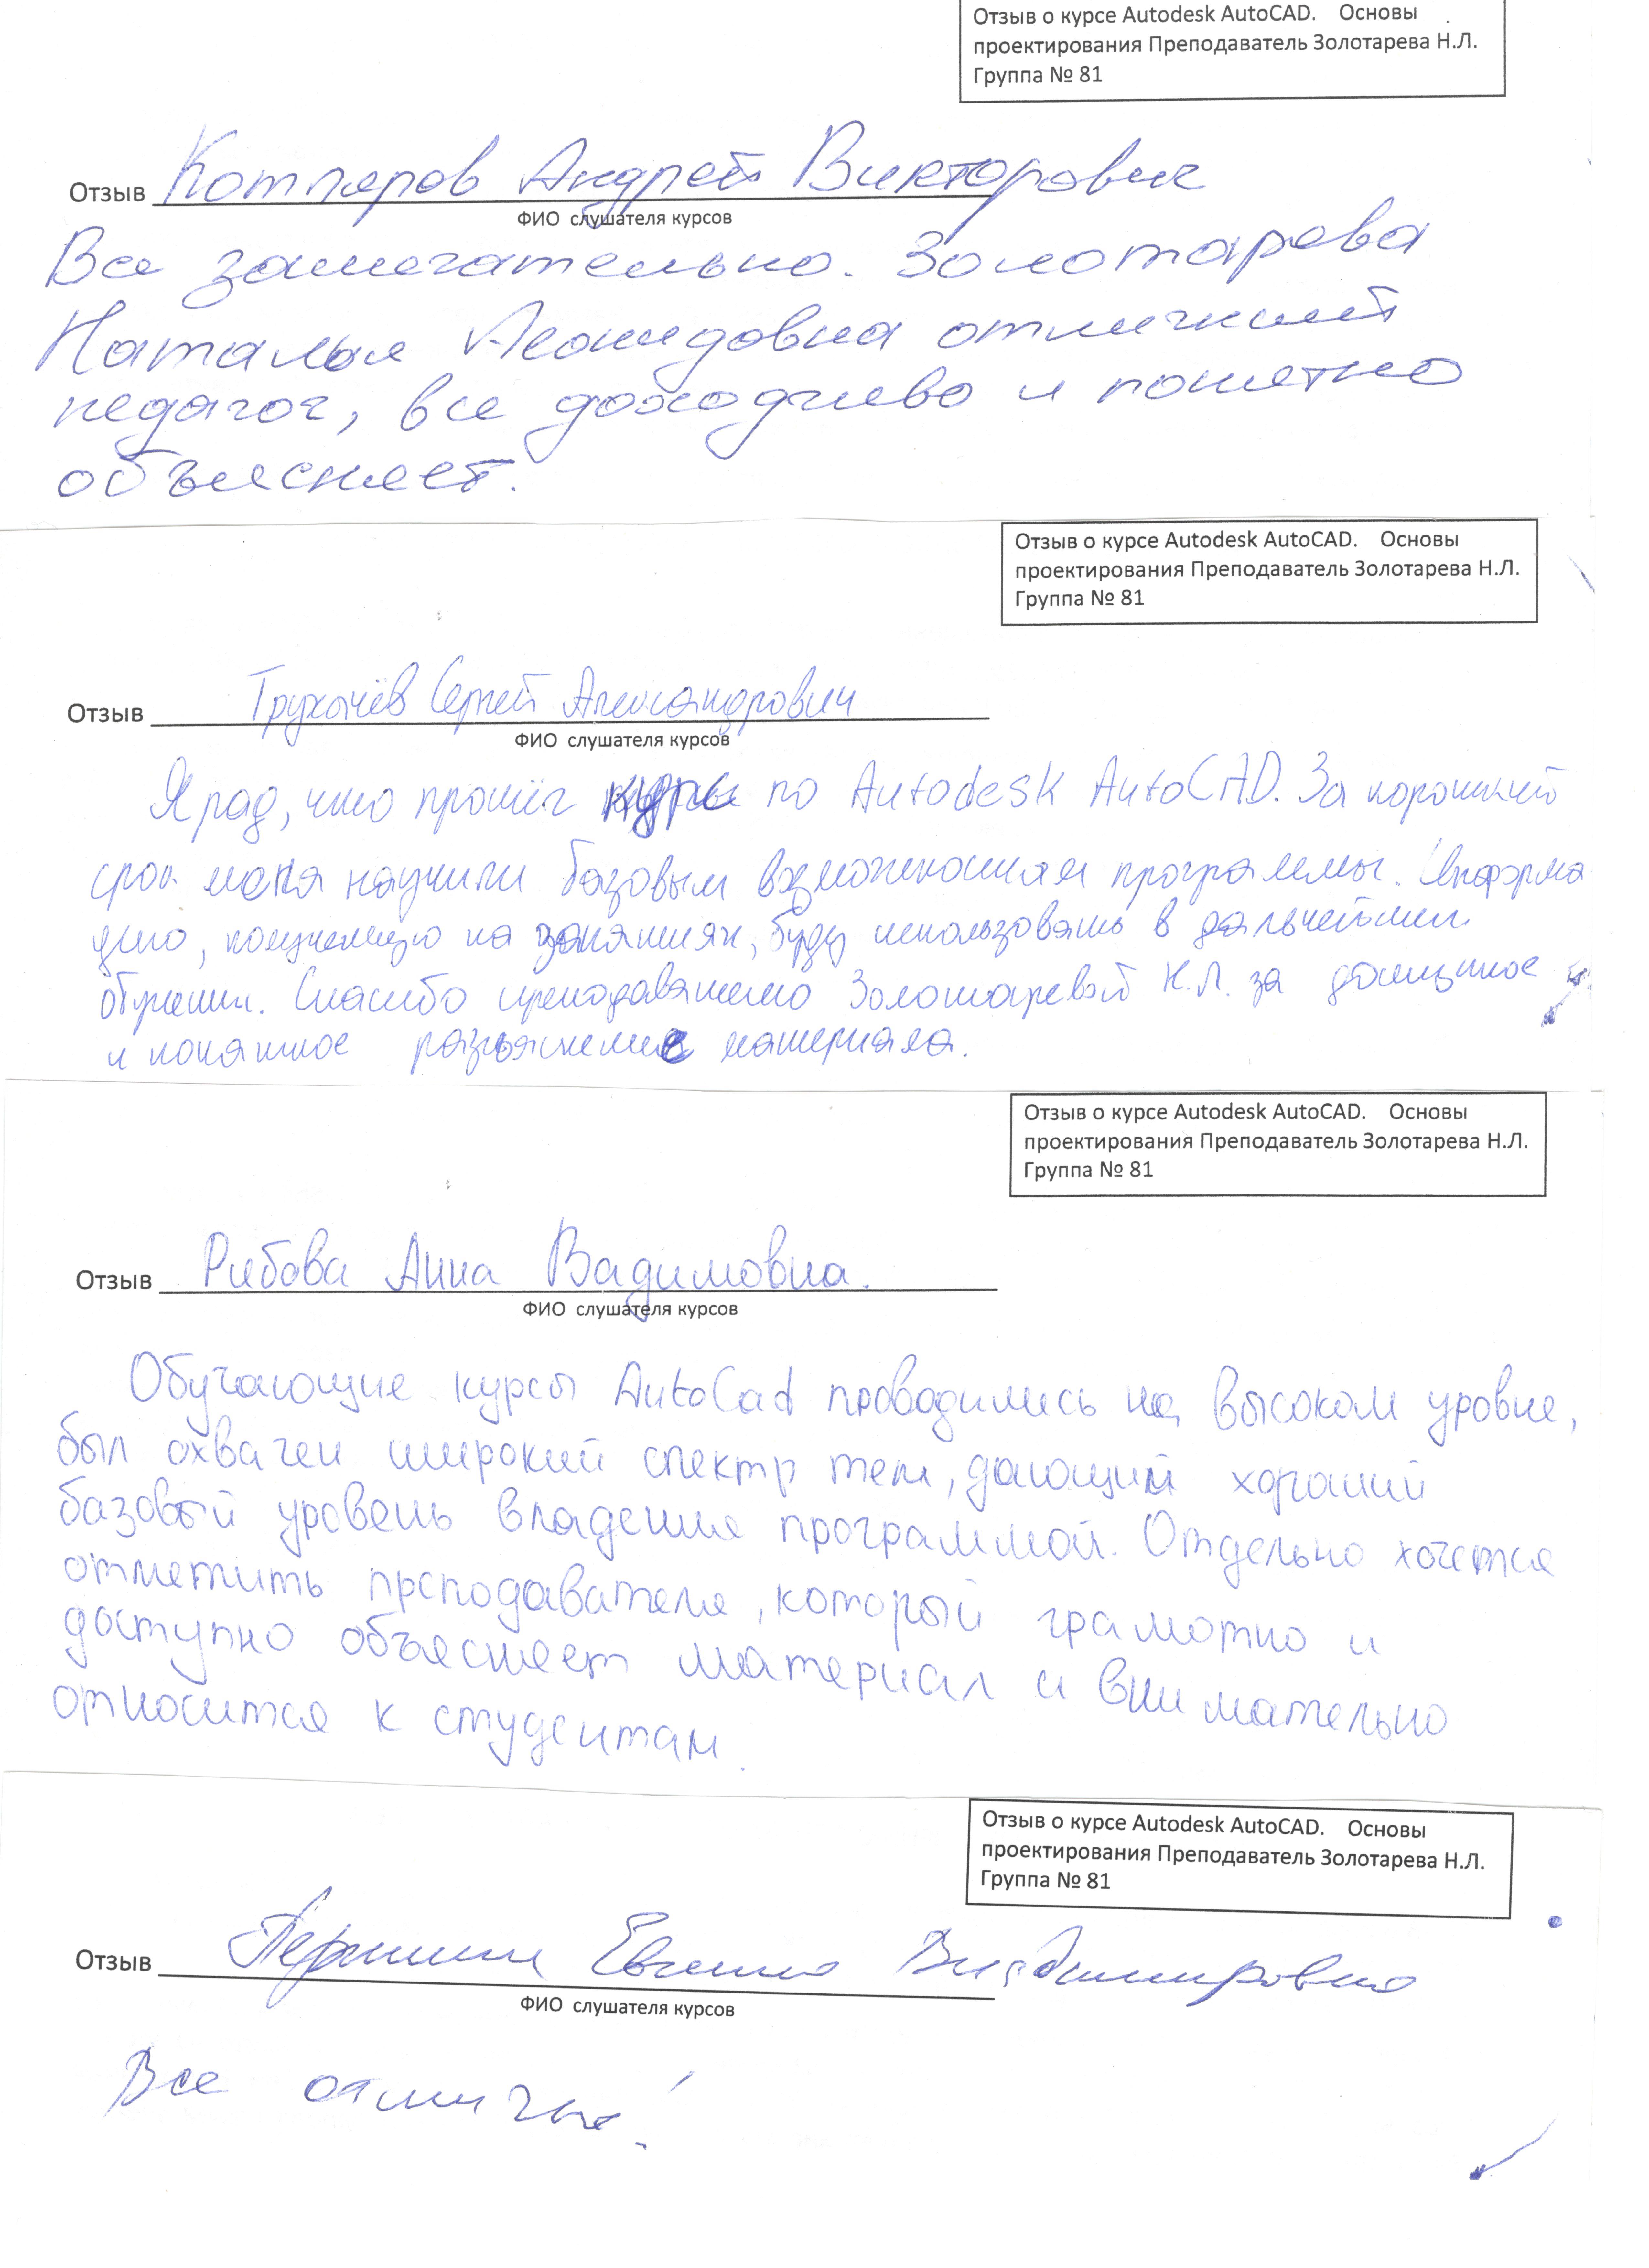 Отзыв о курсе Autodesk AutoCAD. Основы
проектирования Преподаватель Золотарева Н.Л.
Группа № 81
Отзыв Котляров Андрей Викторович
ФИО слушателя курсов
Все замечательно. Золотарева
Наталья Леонидовна отличный
педагог, все доходчиво и понятно
объясняет.
Отзыв о курсе Autodesk AutoCAD. Основы
проектирования Преподаватель Золотарева Н.Л.
Группа № 81
Отзыв Трухачёв Сергей Александрович
ФИО слушателя курсов
Я рад, что прошёл курсы по Autodesk AutoCAD. За короткий
срок меня научили базовым возможностям программы. Информа
цию, полученную на занятиях, буду использовать в дальнейшем
обучении. Спасибо преподавателю Золотаревой Н.Л. за доступное
и понятное разъяснение материала.
Отзыв о курсе Autodesk AutoCAD. Основы
проектирования Преподаватель Золотарева Н.Л.
Группа № 81
Отзыв Рябова Анна Вадимовна.
ФИО слушателя курсов
Обучающие курсы AutoCad проводились на высоком уровне,
был охвачен широкий спектр тем, дающий хороший
базовый уровень владения программой. Отдельно хочется
отметить преподавателя, который грамотно и
доступно объясняет материал и внимательно
относится к студентам.
Отзыв о курсе Autodesk AutoCAD. Основы
проектирования Преподаватель Золотарева Н.Л.
Группа № 81
Отзыв Владимировна
ФИО слушателя курсов
Все отлично!